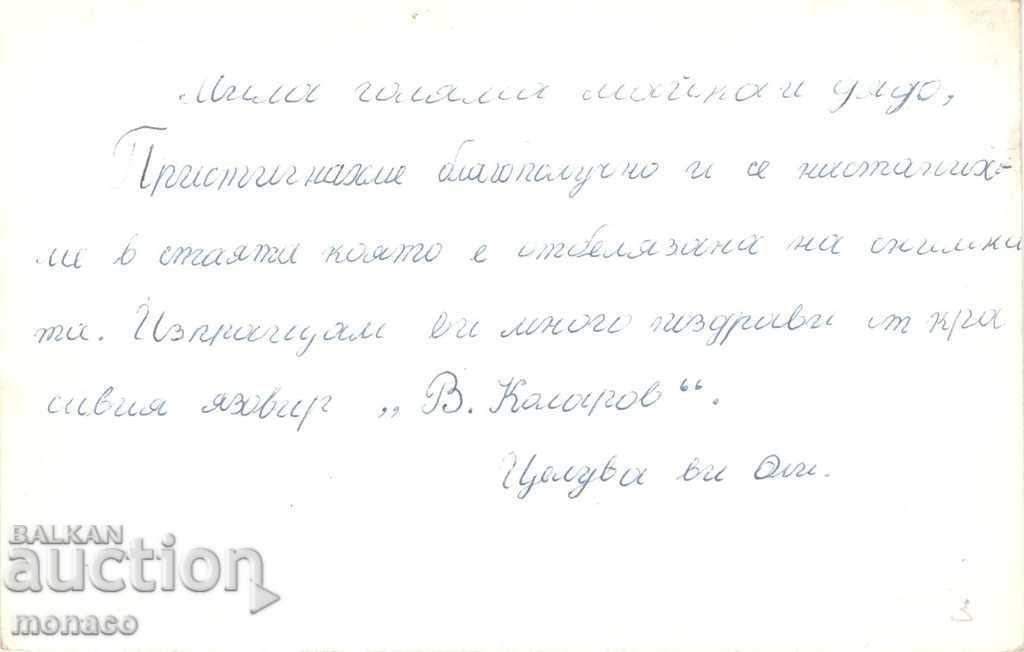 Мила голяма майка и дядо,
Пристигнахме благополучно и се настаних-
ме в стаята която е отбелязана на снимка
та. Изпращам ви много поздрави от кра
сивия язовир „В. Коларов“.
Целува ви Оли.
BALKAN
auction
monaco
3